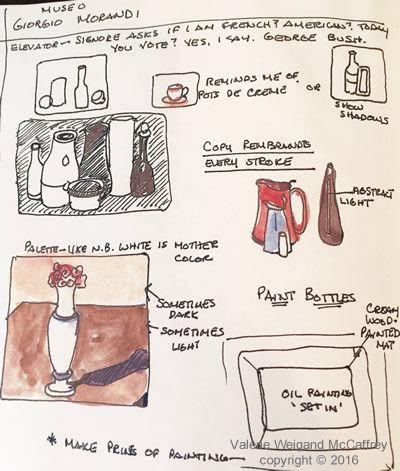 MUSEO
GIORGIO MORANDI
ELEVATOR - SIGNORE ASKS IF I AM FRENCH? AMERICAN?. TODAY
YOU VOTE? YES, I SAY. GEORGE BUSH.
REMINDS ME OF
POTS DE CREME OR
SHOW
SHADOWS
COPY REMBRANDTS
EVERY STROKE
ABSTRACT
LIGHT
PALETTE - LIKE N.B. WHITE IS MOTHER
COLOR
SOMETIMES
DARK
SOMETIMES
LIGHT
PAINT BOTTLES
CREAM
WOOD.
PAINTED
MAT
OIL PAINTING
'SET IN'
* MAKE PRINTS OF PAINTING
Valerie Weigand McCaffrey
copyright © 2016